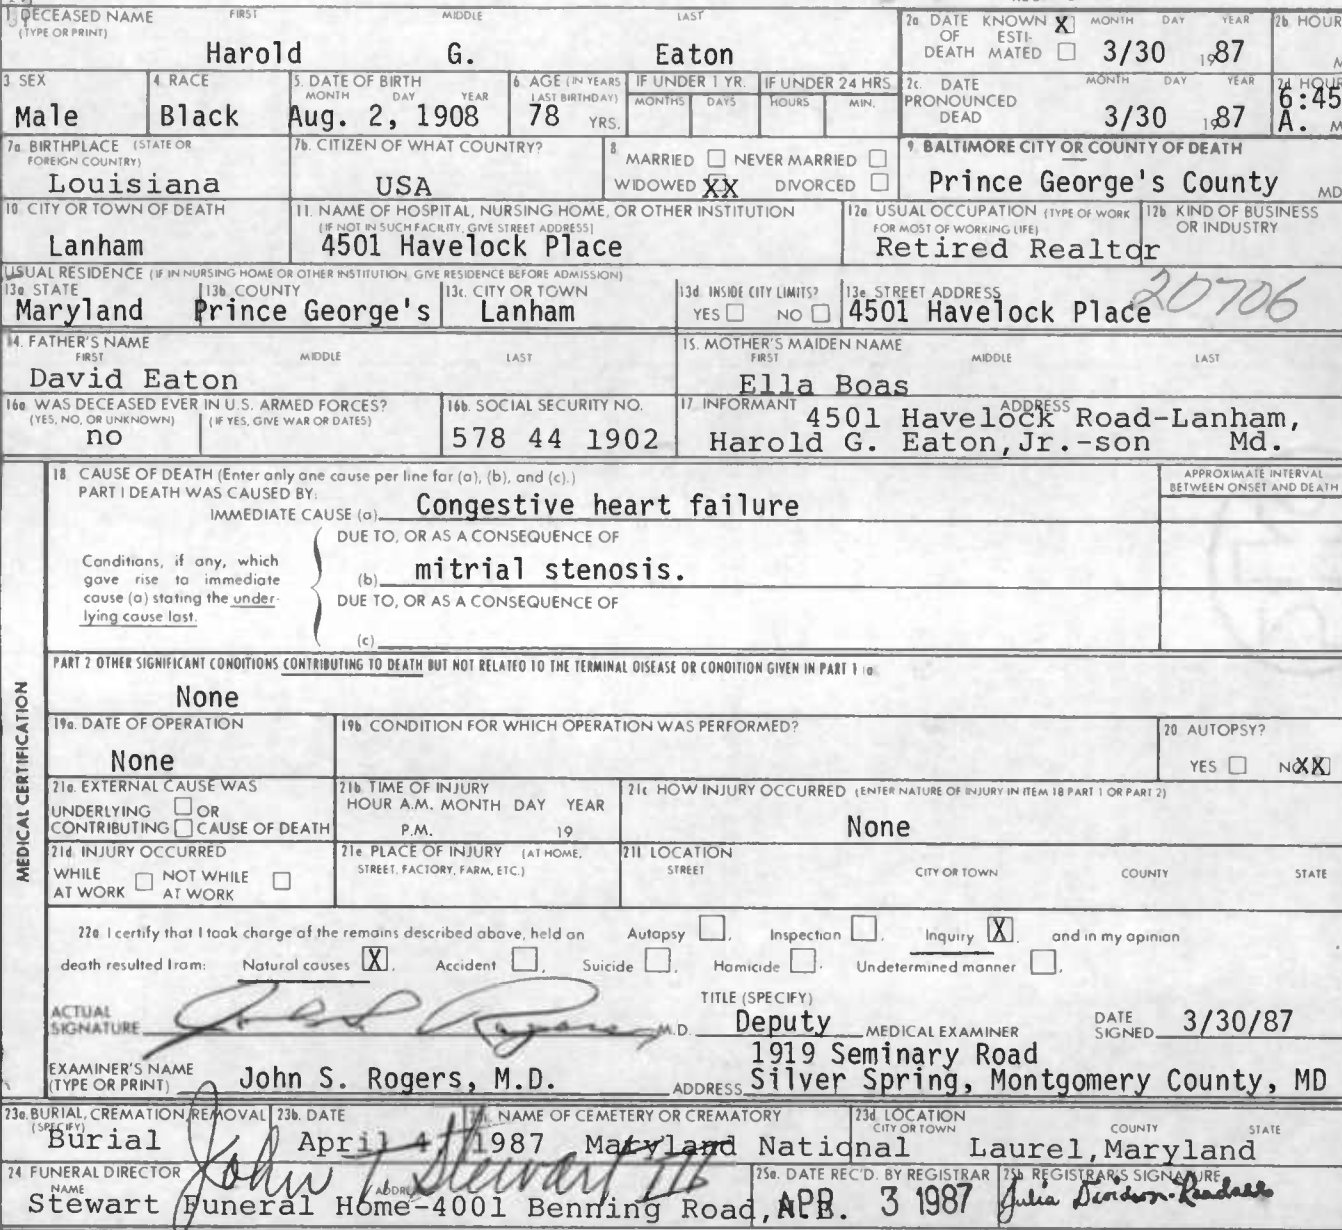 1 DECEASED NAME (TYPE OR PRINT) FIRST MIDDLE LAST
Harold G. Eaton
2a DATE OF DEATH KNOWN X ESTIMATED MONTH DAY YEAR
3/30 1987
2b HOUR
3 SEX
Male
4 RACE
Black
5. DATE OF BIRTH MONTH DAY YEAR
Aug. 2, 1908
6 AGE (IN YEARS LAST BIRTHDAY)
78 YRS.
IF UNDER 1 YR. MONTHS DAYS
IF UNDER 24 HRS HOURS MIN.
2c. DATE PRONOUNCED DEAD MONTH DAY YEAR
3/30 1987
2d HOUR
6:45 A. M
7a BIRTHPLACE (STATE OR FOREIGN COUNTRY)
Louisiana
7b. CITIZEN OF WHAT COUNTRY?
USA
8 MARRIED NEVER MARRIED
WIDOWED XX DIVORCED
9 BALTIMORE CITY OR COUNTY OF DEATH
Prince George's County MD
10 CITY OR TOWN OF DEATH
Lanham
11. NAME OF HOSPITAL, NURSING HOME, OR OTHER INSTITUTION
(IF NOT IN SUCH FACILITY, GIVE STREET ADDRESS)
4501 Havelock Place
12a USUAL OCCUPATION (TYPE OF WORK FOR MOST OF WORKING LIFE)
Retired Realtor
12b KIND OF BUSINESS OR INDUSTRY
USUAL RESIDENCE (IF IN NURSING HOME OR OTHER INSTITUTION, GIVE RESIDENCE BEFORE ADMISSION)
13a STATE
Maryland
13b COUNTY
Prince George's
13c. CITY OR TOWN
Lanham
13d. INSIDE CITY LIMITS?
YES NO
13e STREET ADDRESS
4501 Havelock Place 20706
14. FATHER'S NAME FIRST MIDDLE LAST
David Eaton
15. MOTHER'S MAIDEN NAME FIRST MIDDLE LAST
Ella Boas
16a WAS DECEASED EVER IN U.S. ARMED FORCES?
(YES, NO, OR UNKNOWN) (IF YES, GIVE WAR OR DATES)
no
16b. SOCIAL SECURITY NO.
578 44 1902
17 INFORMANT ADDRESS
4501 Havelock Road-Lanham,
Harold G. Eaton,Jr.-son Md.
MEDICAL CERTIFICATION
18 CAUSE OF DEATH (Enter only one cause per line for (a), (b), and (c).)
APPROXIMATE INTERVAL BETWEEN ONSET AND DEATH
PART I DEATH WAS CAUSED BY:
IMMEDIATE CAUSE (a) Congestive heart failure
DUE TO, OR AS A CONSEQUENCE OF
Conditions, if any, which
gave rise to immediate
cause (a) stating the under-
lying cause last.
(b) mitrial stenosis.
DUE TO, OR AS A CONSEQUENCE OF
(c)
PART 2 OTHER SIGNIFICANT CONDITIONS CONTRIBUTING TO DEATH BUT NOT RELATED TO THE TERMINAL DISEASE OR CONDITION GIVEN IN PART 1 (a
None
19a. DATE OF OPERATION
None
19b CONDITION FOR WHICH OPERATION WAS PERFORMED?
20 AUTOPSY?
YES NO XX
21a. EXTERNAL CAUSE WAS
UNDERLYING OR
CONTRIBUTING CAUSE OF DEATH
21b. TIME OF INJURY
HOUR A.M. MONTH DAY YEAR
P.M. 19
21c HOW INJURY OCCURRED (ENTER NATURE OF INJURY IN ITEM 18 PART 1 OR PART 2)
None
21d. INJURY OCCURRED
WHILE AT WORK NOT WHILE AT WORK
21e PLACE OF INJURY (AT HOME, STREET, FACTORY, FARM, ETC.)
21f LOCATION
STREET CITY OR TOWN COUNTY STATE
22a I certify that I took charge of the remains described above, held an Autopsy , Inspection , Inquiry X , and in my opinion
death resulted from: Natural causes X , Accident , Suicide , Homicide . Undetermined manner ,
ACTUAL SIGNATURE John S. Rogers M.D.
TITLE (SPECIFY)
Deputy MEDICAL EXAMINER
DATE SIGNED 3/30/87
EXAMINER'S NAME (TYPE OR PRINT) John S. Rogers, M.D.
1919 Seminary Road
ADDRESS Silver Spring, Montgomery County, MD
23a. BURIAL, CREMATION, REMOVAL (SPECIFY)
Burial
23b. DATE
April 4, 1987
NAME OF CEMETERY OR CREMATORY
Maryland National
23d LOCATION CITY OR TOWN COUNTY STATE
Laurel,Maryland
24 FUNERAL DIRECTOR
John T Stewart III
NAME ADDRESS
Stewart Funeral Home-4001 Benning Road,
25a. DATE REC'D. BY REGISTRAR
APR. 3 1987
25b REGISTRAR'S SIGNATURE
Julia Davidson-Randall